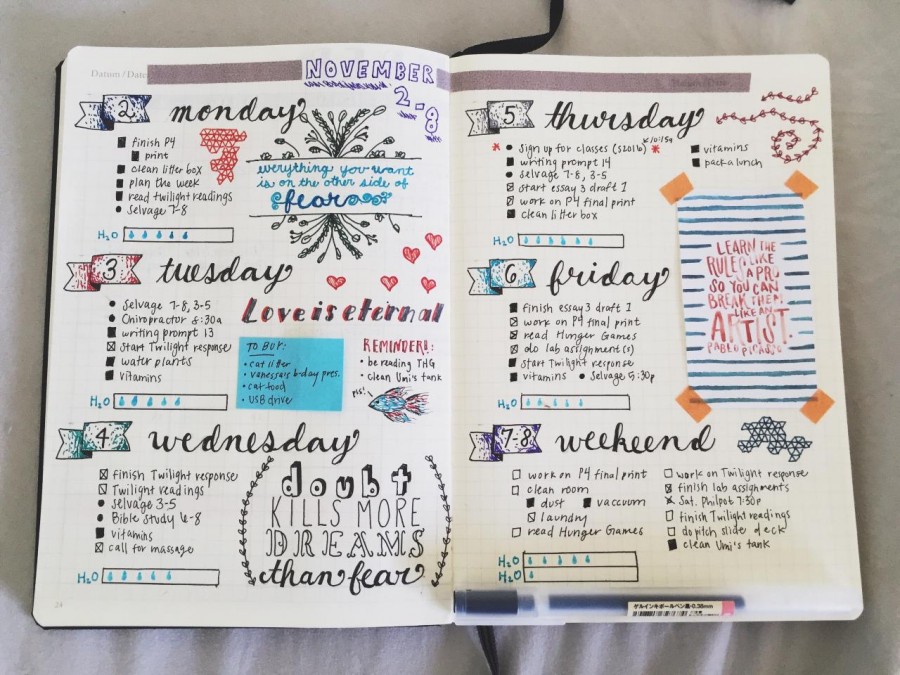 Datum / Date
NOVEMBER
2-8
2 monday
finish P4
print
clean litter box
plan the week
read twilight readings
Selvage 7-8
H₂O
everything you want
is on the other side of
fear
3 tuesday
Selvage 7-8, 3-5
Chiropractor 8:30a
writing prompt 13
start Twilight response
water plants
vitamins
H₂O
Love is eternal
TO BUY:
• cat litter
• vanessa's b-day pres.
• cat food
• USB drive
REMINDER!:
• be reading THG
• clean Umi's tank
psst!
4 wednesday
finish Twilight response
Twilight readings
selvage 3-5
Bible Study 6-8
vitamins
call for massage
H₂O
doubt
KILLS MORE
DREAMS
than fear
24
5 thursday
* Sign up for classes (s2016) * 10:15a
writing prompt 14
selvage 7-8, 3-5
start essay 3 draft 1
work on P4 final print
clean litter box
vitamins
pack a lunch
H₂O
LEARN THE
RULES LIKE
A PRO
SO YOU CAN
BREAK THEM
LIKE AN
ARTIST.
PABLO PICASSO
6 friday
finish essay 3 draft 1
work on P4 final print
read Hunger Games
do lab assignment(s)
start Twilight response
vitamins • Selvage 5:30p
H₂O
7-8 weekend
work on P4 final print
clean room
dust vaccuum
laundry
read Hunger Games
work on Twilight response
finish lab assignments
Sat. Philpot 7:30p
finish Twilight readings
do pitch slide deck
clean Umi's tank
H₂O
H₂O
ゲルインキボールペン 0.38mm